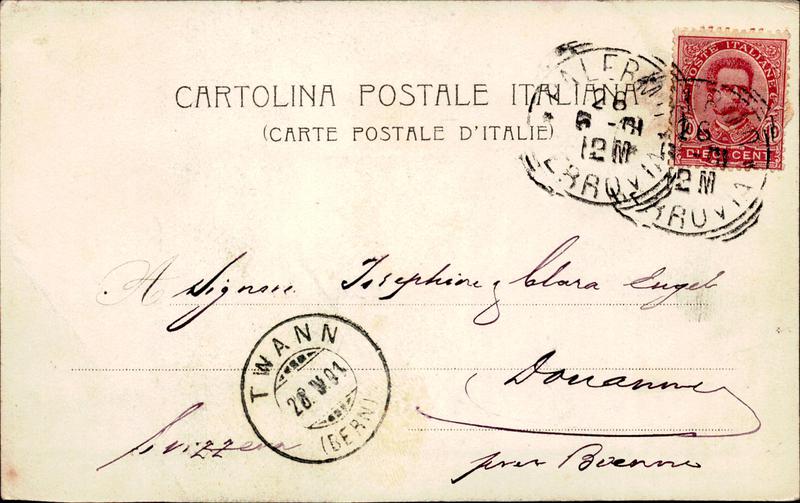 CARTOLINA POSTALE ITALIANA
(CARTE POSTALE D'ITALIE)
POSTE ITALIANE
DIECI CENT
PALERMO
26
12 M
FERROVIA
26
12 M
FERROVIA
A Signore Josephine & Clara Engel
TWANN
28.IV.01
(BERN)
Douanne
Svizzera
per Bienne